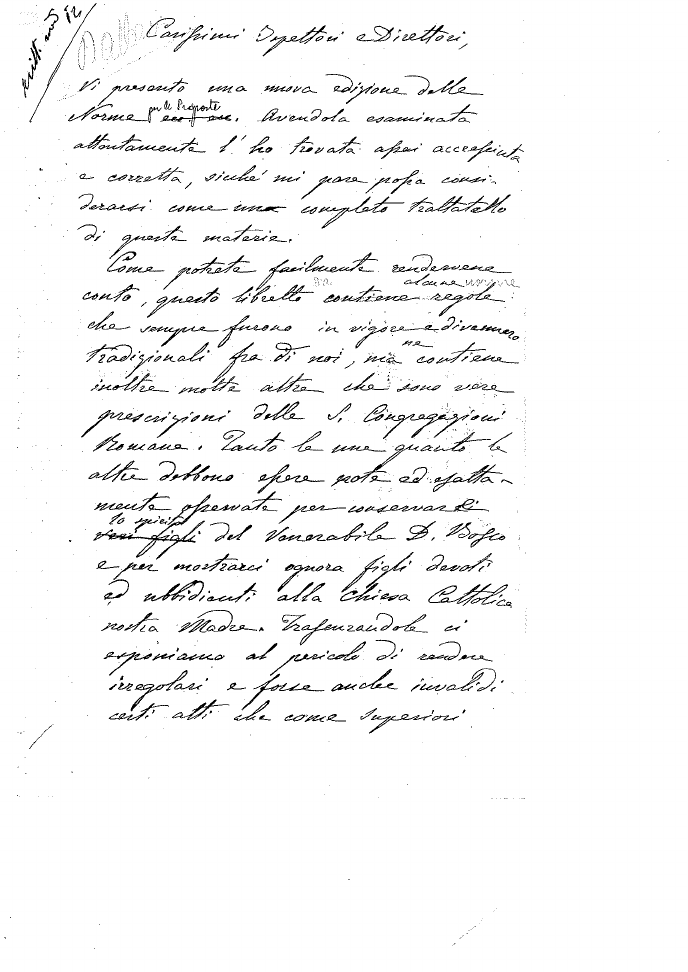 Carissimi Ispettori e Direttori,
Vi presento una nuova edizione delle
per le Proposte
Norme. Avendola esaminata
attentamente l'ho trovata assai accresciuta
e corretta, sicché mi pare possa consi-
derarsi come un completo trattatello
di queste materie.
Come potrete facilmente rendervene
alcune norme
conto, questo libretto contiene regole
che sempre furono in vigore e divennero
ne
tradizionali fra di noi, ma contiene
inoltre molte altre che sono vere
prescrizioni delle S. Congregazioni
Romane. Tanto le une quanto le
altre debbono essere note ed esatta-
mente osservate per conservar
lo spirito
veri figli del Venerabile D. Bosco
e per mostrarci ognora figli devoti
ed ubbidienti alla Chiesa Cattolica
nostra Madre. Trascurandole ci
esponiamo al pericolo di rendere
irregolari e forse anche invalidi
certi atti che come Superiori